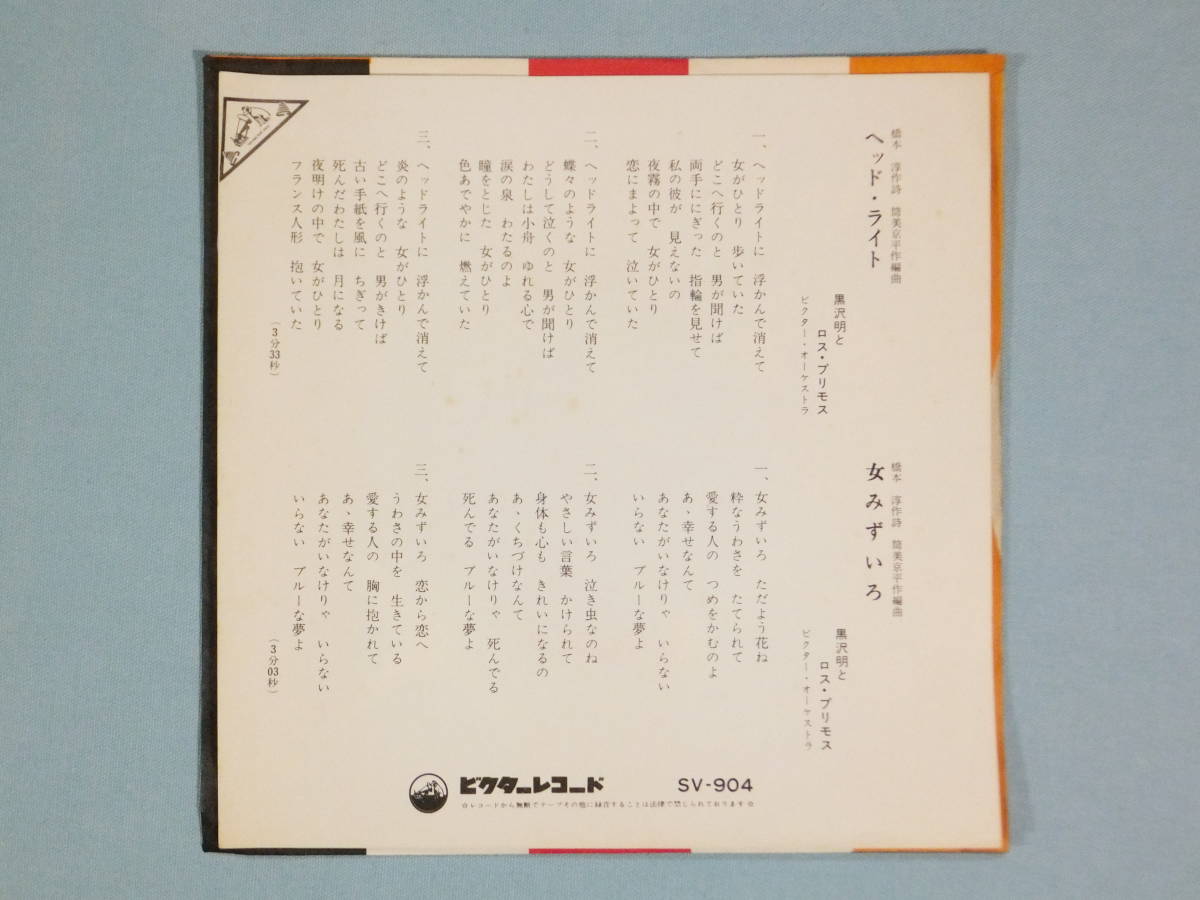 橋本　淳作詩　筒美京平作編曲
ヘッド・ライト
黒沢明と
ロス・プリモス
ビクター・オーケストラ
一、ヘッドライトに　浮かんで消えて
女がひとり　歩いていた
どこへ行くのと　男が聞けば
両手ににぎった　指輪を見せて
私の彼が　見えないの
夜霧の中で　女がひとり
恋にまよって　泣いていた
二、ヘッドライトに　浮かんで消えて
蝶々のような　女がひとり
どうして泣くのと　男が聞けば
わたしは小舟　ゆれる心で
涙の泉　わたるのよ
瞳をとじた　女がひとり
色あでやかに　燃えていた
三、ヘッドライトに　浮かんで消えて
炎のような　女がひとり
どこへ行くのと　男がきけば
古い手紙を風に　ちぎって
死んだわたしは　月になる
夜明けの中で　女がひとり
フランス人形　抱いていた
（3分33秒）
橋本　淳作詩　筒美京平作編曲
女みずいろ
黒沢明と
ロス・プリモス
ビクター・オーケストラ
一、女みずいろ　ただよう花ね
粋なうわさを　たてられて
愛する人の　つめをかむのよ
あゝ幸せなんて
あなたがいなけりゃ　いらない
いらない　ブルーな夢よ
二、女みずいろ　泣き虫なのね
やさしい言葉　かけられて
身体も心も　きれいになるの
あゝくちづけなんて
あなたがいなけりゃ　死んでる
死んでる　ブルーな夢よ
三、女みずいろ　恋から恋へ
うわさの中を　生きている
愛する人の　胸に抱かれて
あゝ幸せなんて
あなたがいなけりゃ　いらない
いらない　ブルーな夢よ
（3分03秒）
ビクターレコード　SV-904
☆レコードから無断でテープその他に録音することは法律で禁じられております☆